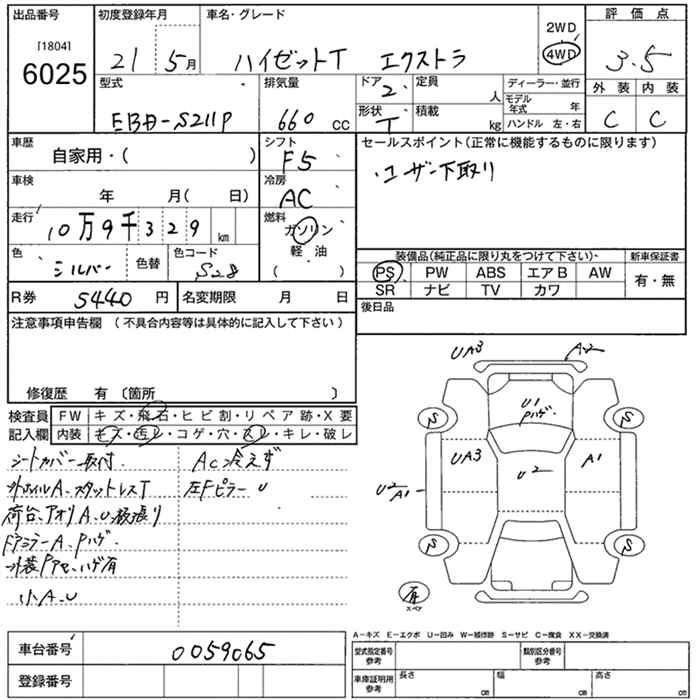 出品番号 初度登録年月 車名・グレード 2WD 評価点
[1804] 6025 21 5月 ハイゼットT エクストラ 4WD 3.5
型式 排気量 ドア 2 定員 人 ディーラー・並行 外装 内装
EBD-S211P 660 CC 形状 T 積載 kg モデル年式 年 C C
ハンドル 左・右
車歴 自家用・( ) シフト F5 セールスポイント(正常に機能するものに限ります)
ユーザー下取り
車検 年 月( 日) 冷房 AC
走行 10万9千329 km 燃料 ガソリン
軽油
( )
色 シルバー 色替 色コード S28
装備品(純正品に限り丸をつけて下さい) 新車保証書
PS PW ABS エアB AW 有・無
SR ナビ TV カワ
R券 5440 円 名変期限 月 日 後日品
注意事項申告欄 (不具合内容等は具体的に記入して下さい)
修復歴 有 〔箇所 〕
検査員 FW キズ・飛石・ヒビ割・リペア跡・X要
記入欄 内装 キズ・汚レ・コゲ・穴・スレ・キレ・破レ
シートカバー取付 AC冷えず
外ホイルA.スタットレスT 左Fピラー U
荷台、アオリA.U.板張り
FミラーA.Pハゲ
外装Pアセ.ハゲ有
小A.U
UA3 A2
U1
Pハゲ
S S
UA3 U2 A1
U2
A1
S S
有
スペア
A−キズ E−エクボ U−凹み W−補修跡 S−サビ C−腐食 XX−交換済
車台番号 0059065
登録番号
型式指定番号 参考 類別区分番号 参考
車庫証明用 参考 長さ cm 幅 cm 高さ cm